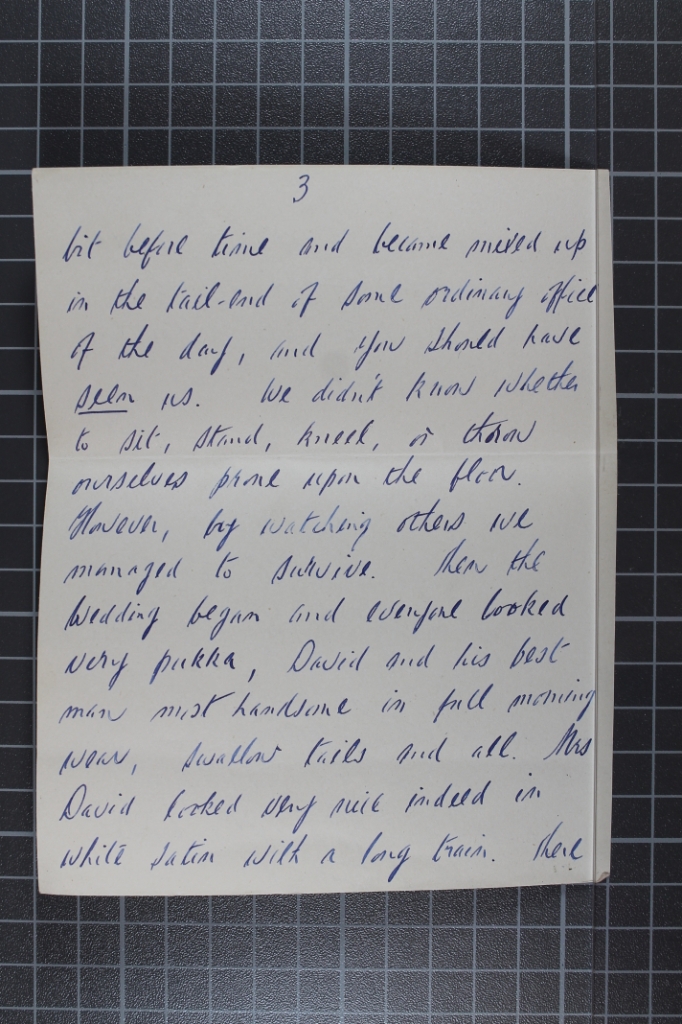 3
bit before time and became mixed up
in the tail-end of some ordinary office
of the day, and you should have
seen us. We didn't know whether
to sit, stand, kneel, or throw
ourselves prone upon the floor.
However, by watching others we
managed to survive. Then the
wedding began and everyone looked
very pukka, David and his best
man most handsome in full morning
wear, swallow tails and all. Mrs
David looked very nice indeed in
white satin with a long train. There